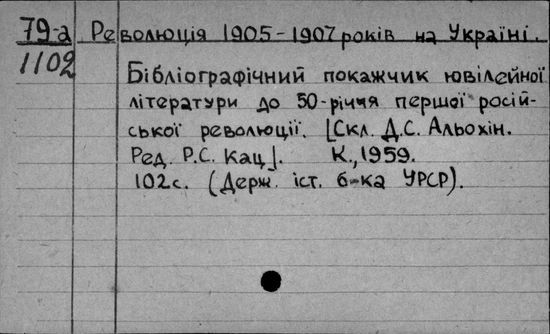 79-а Революція 1905-1907 років на Україні.
1102
Бібліографічний покажчик ювілейної
літератури до 50-річчя першої росій-
ської революції. [Скл. Д.С. Альохін.
Ред. Р.С. Кац]. К., 1959.
102 с. (Держ. іст. б-ка УРСР).